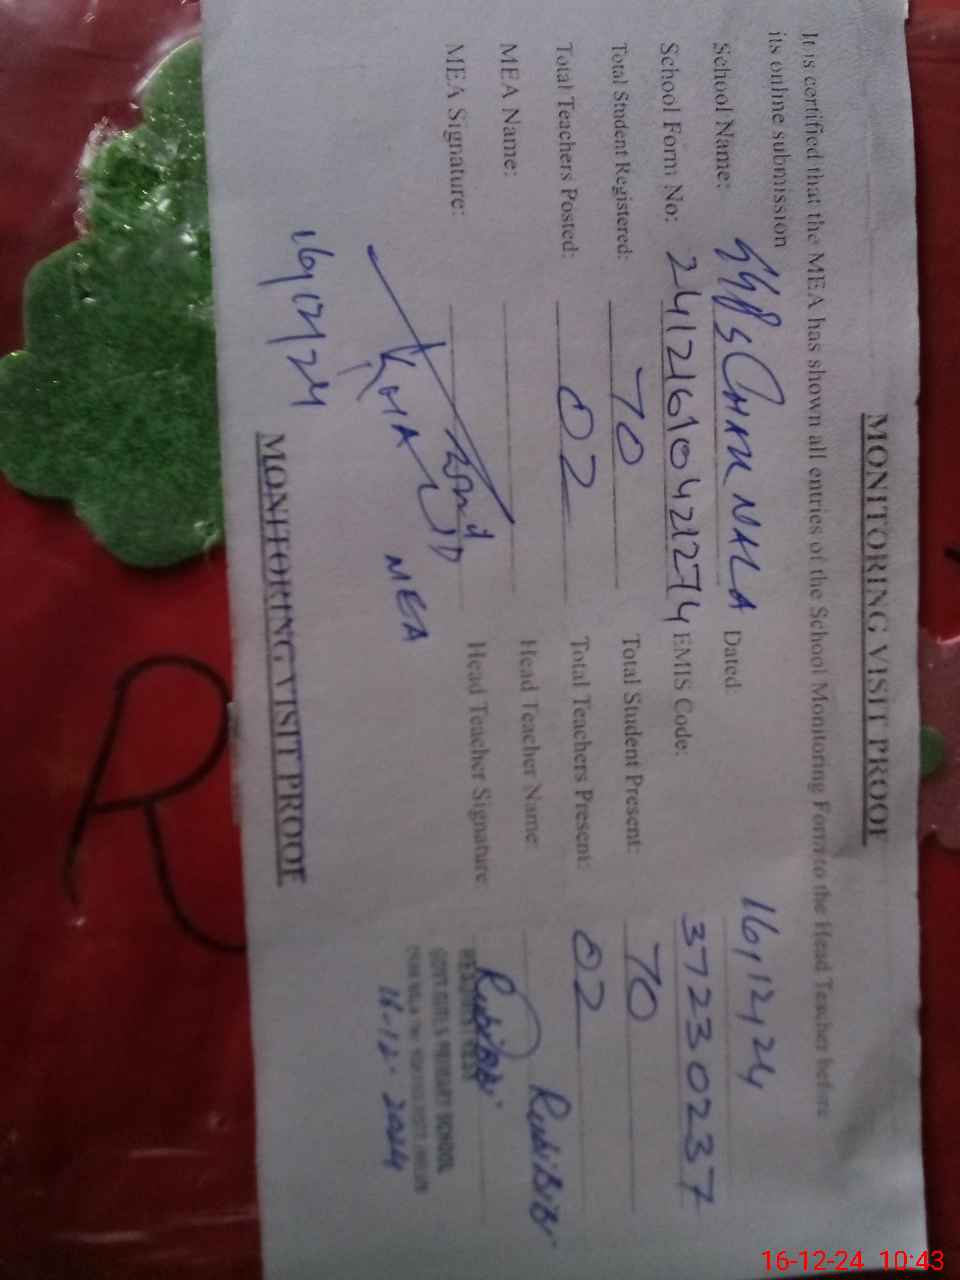 MONITORING VISIT PROOF
It is certified that the MEA has shown all entries of the School Monitoring Form to the Head Teacher before
its online submission
School Name: GGPS CHAK NALA Dated: 16/12/24
School Form No: 241216104212274 EMIS Code: 37230237
Total Student Registered: 70 Total Student Present: 70
Total Teachers Posted: 02 Total Teachers Present: 02
MEA Name: Head Teacher Name: Rubi Bibi
MEA Signature: Head Teacher Signature: Rubi Bibi
HEADMISTRESS
GOVT. GIRLS PRIMARY SCHOOL
16-12-2024
KHALID
MEA
16/12/24
MONITORING VISIT PROOF
R
16-12-24 10:43